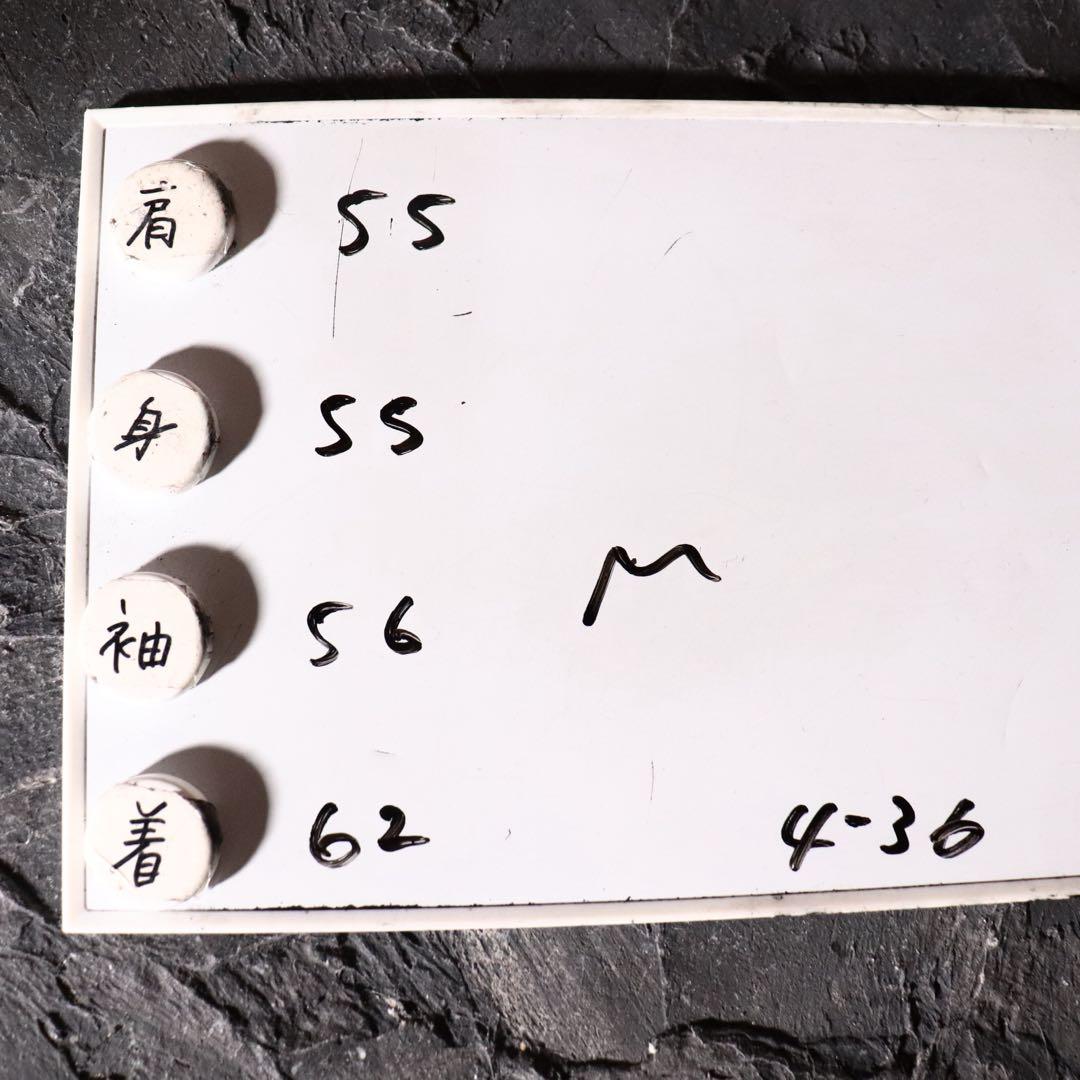 肩 55
身 55
袖 56
M
着 62
4-36